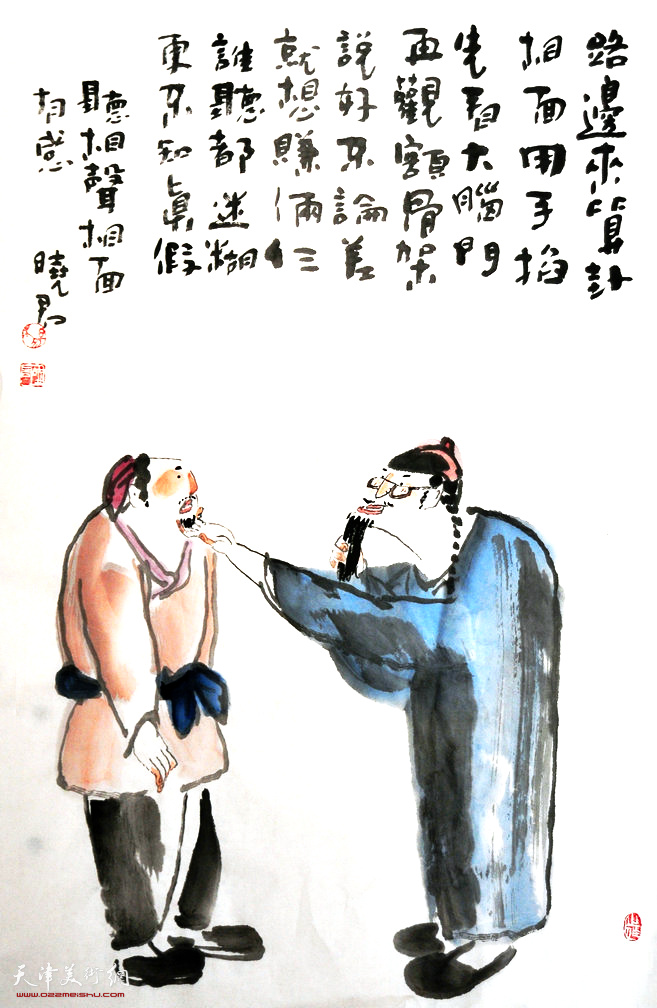 路邊來算卦
相面用手掐
先看大腦門
再觀額骨架
說好不論差
就想賺倆仨
誰聽都迷糊
更不知真假
聽相聲相面
有感
曉君
天津美術網
www.022meishu.com